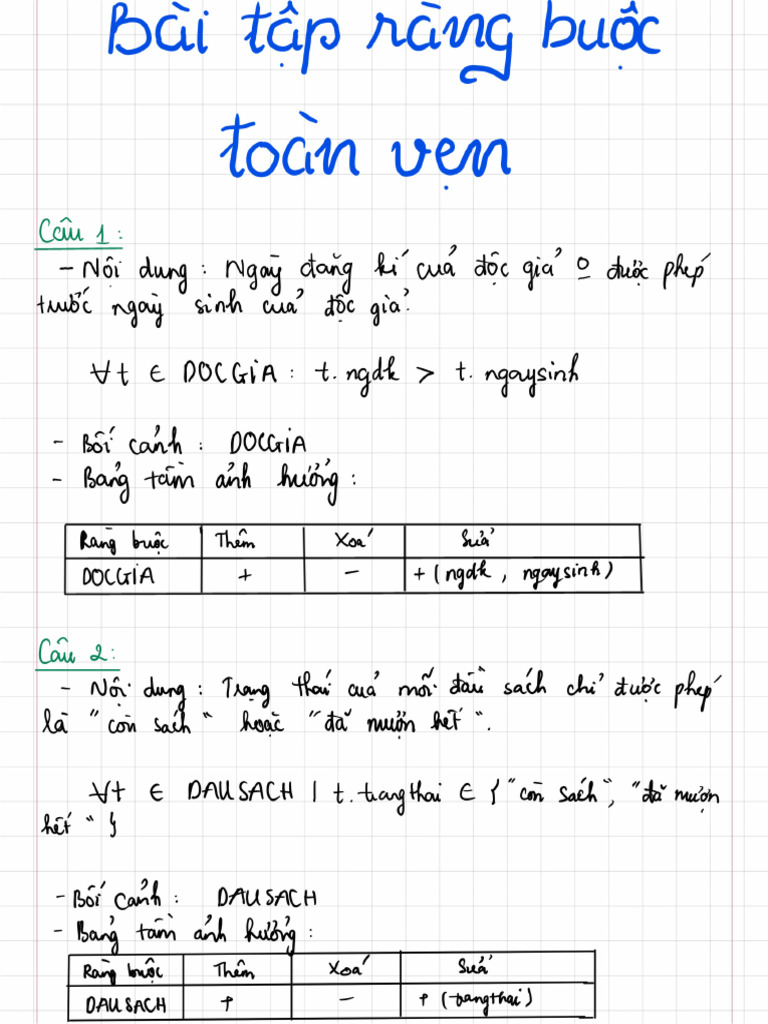 Bài tập ràng buộc
toàn vẹn
Câu 1:
- Nội dung: Ngày đăng kí của độc giả o được phép
trước ngày sinh của độc giả.
∀t ∈ DOCGIA: t.ngdk > t.ngaysinh
- Bối cảnh: DOCGIA
- Bảng tầm ảnh hưởng:
Ràng buộc Thêm Xoá Sửa
DOCGIA + - +(ngdk, ngaysinh)
Câu 2:
- Nội dung: Trạng thái của mỗi đầu sách chỉ được phép
là "còn sách" hoặc "đã mượn hết".
∀t ∈ DAUSACH | t.trangthai ∈ {"còn sách", "đã mượn
hết"}
- Bối cảnh: DAUSACH
- Bảng tầm ảnh hưởng:
Ràng buộc Thêm Xoá Sửa
DAUSACH + - +(trangthai)